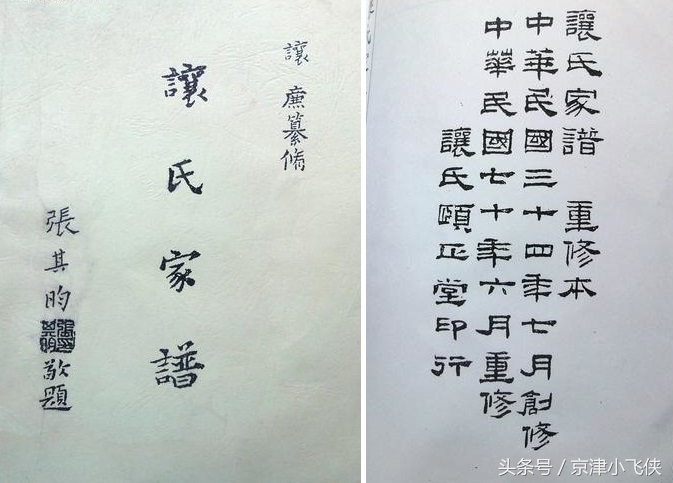 讓廉纂脩
讓氏家譜
張其昀敬題
讓氏家譜 重修本
中華民國三十四年七月創修
中華民國七十年六月重修
讓氏頤正堂印行
头条号／京津小飞侠